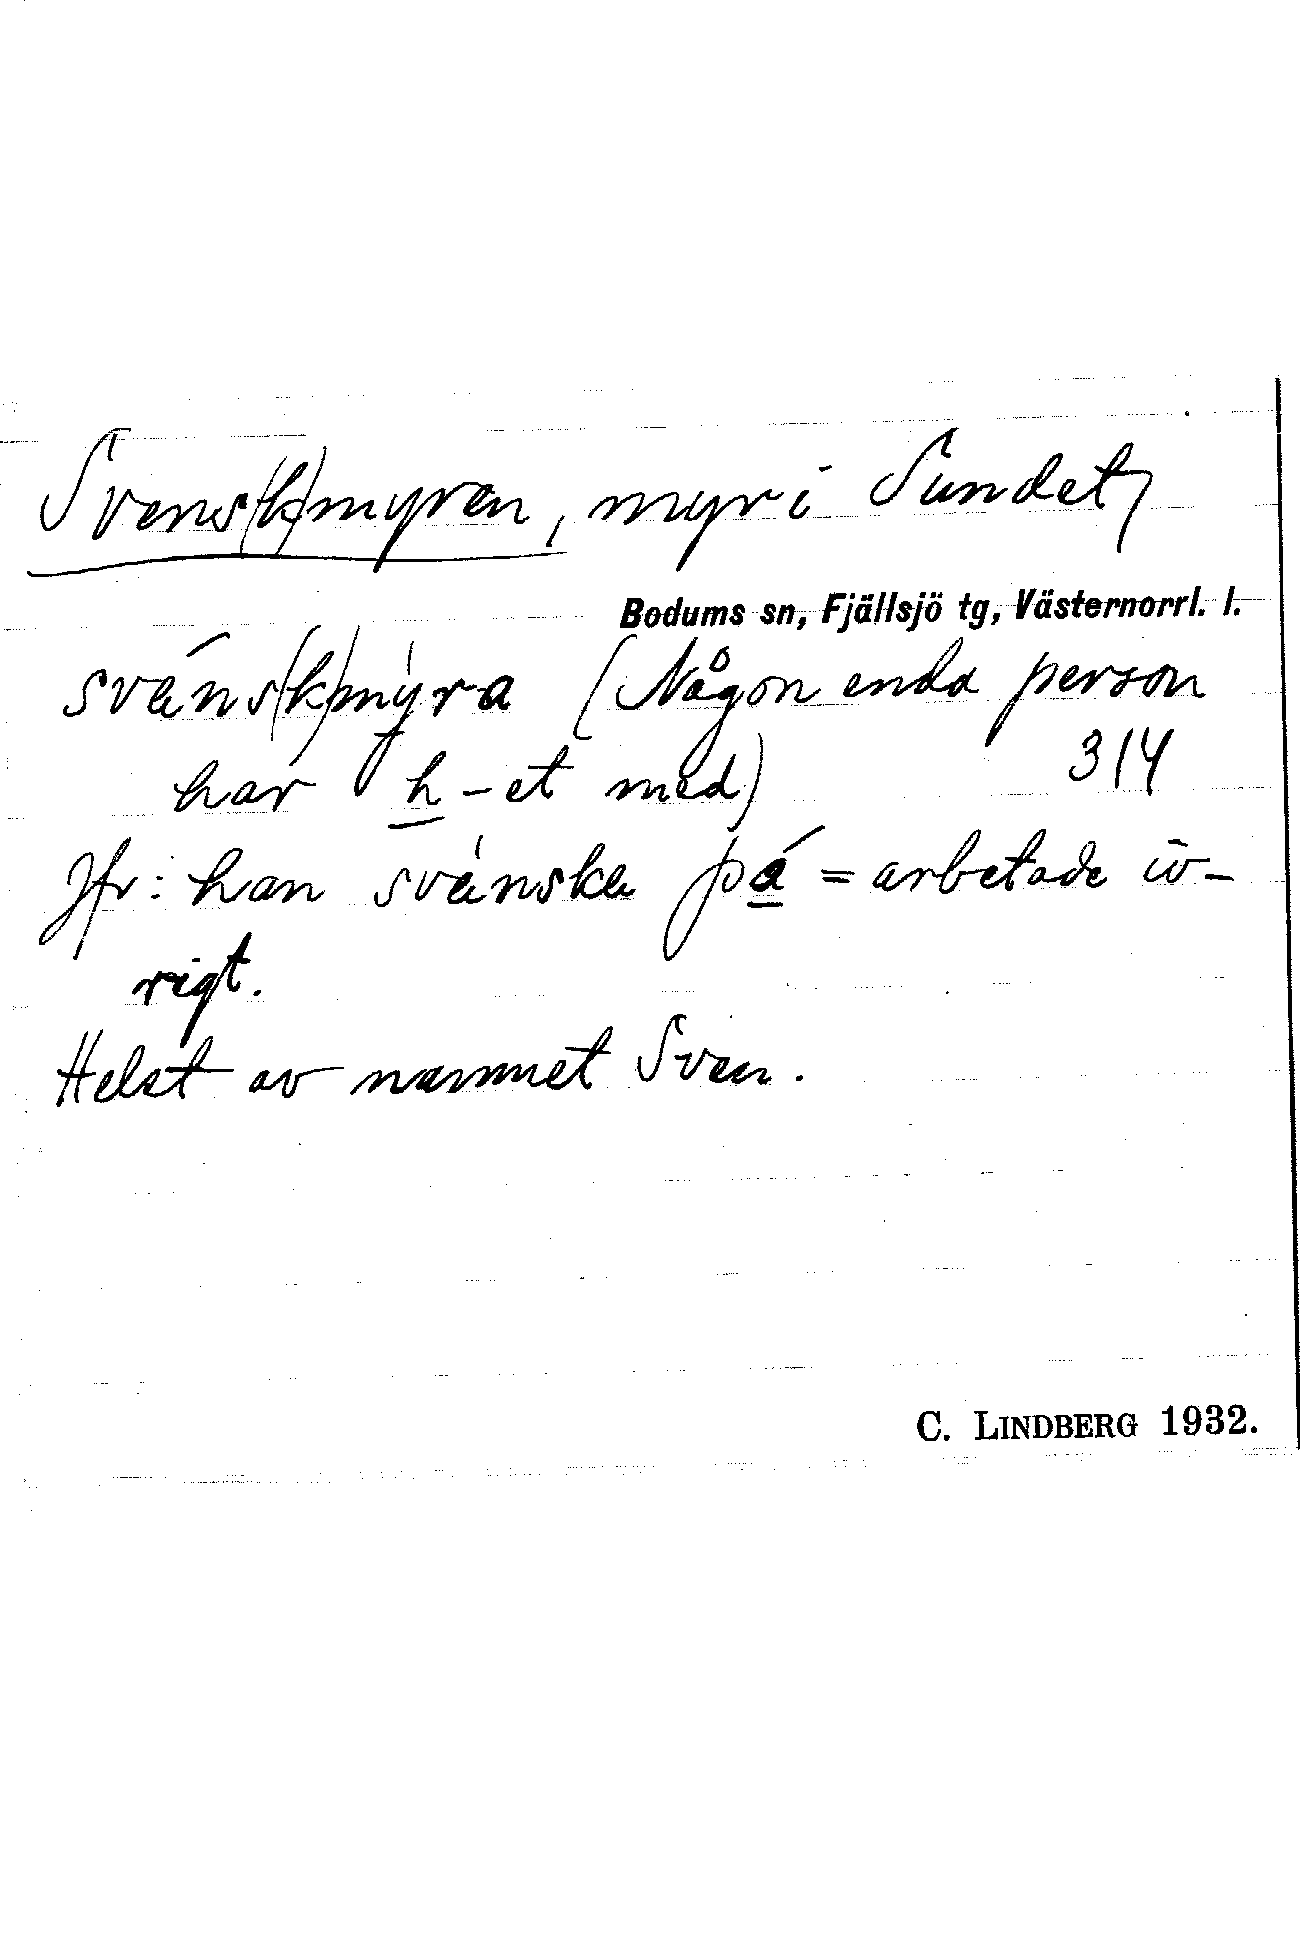 Svens(k)myren, myr i Sundet,
Bodums sn, Fjällsjö tg, Västernorrl. l.
svéns(k)mýra (Någon enda person
har h-et med) 3/4
Jfr: han svénska på = arbetade iv-
rigt.
Helst av namnet Sven.
C. LINDBERG 1932.